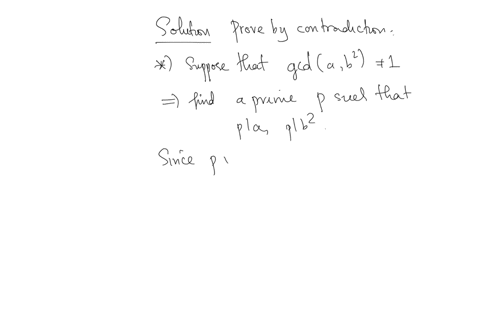 Solution Prove by contradiction.
*) Suppose that gcd(a, b²) ≠ 1
⇒ find a prime p such that
p|a, p|b².
Since p